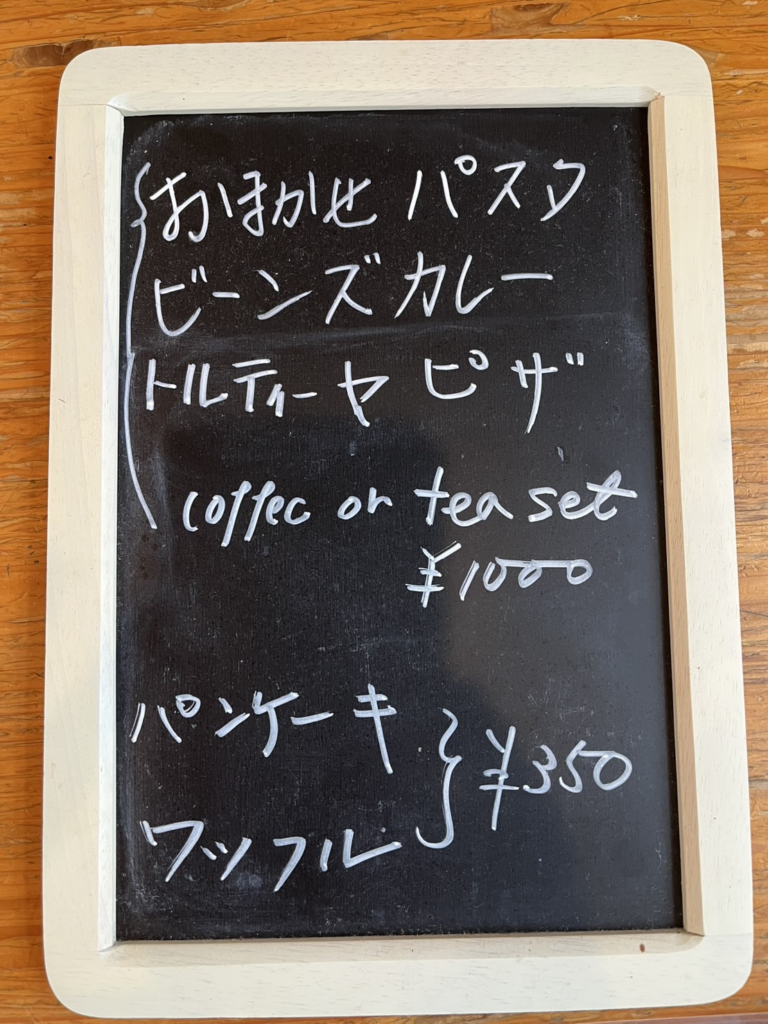 おまかせ パスタ
ビーンズカレー
トルティーヤ ピザ
coffee or tea set
¥1000
パンケーキ
ワッフル
¥350